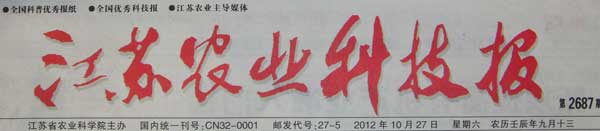 ●全国科普优秀报纸 ●全国优秀科技报 ●江苏农业主导媒体
江苏农业科技报
第2687期
江苏省农业科学院主办 国内统一刊号:CN32-0001 邮发代号:27-5 2012年10月27日 星期六 农历壬辰年九月十三